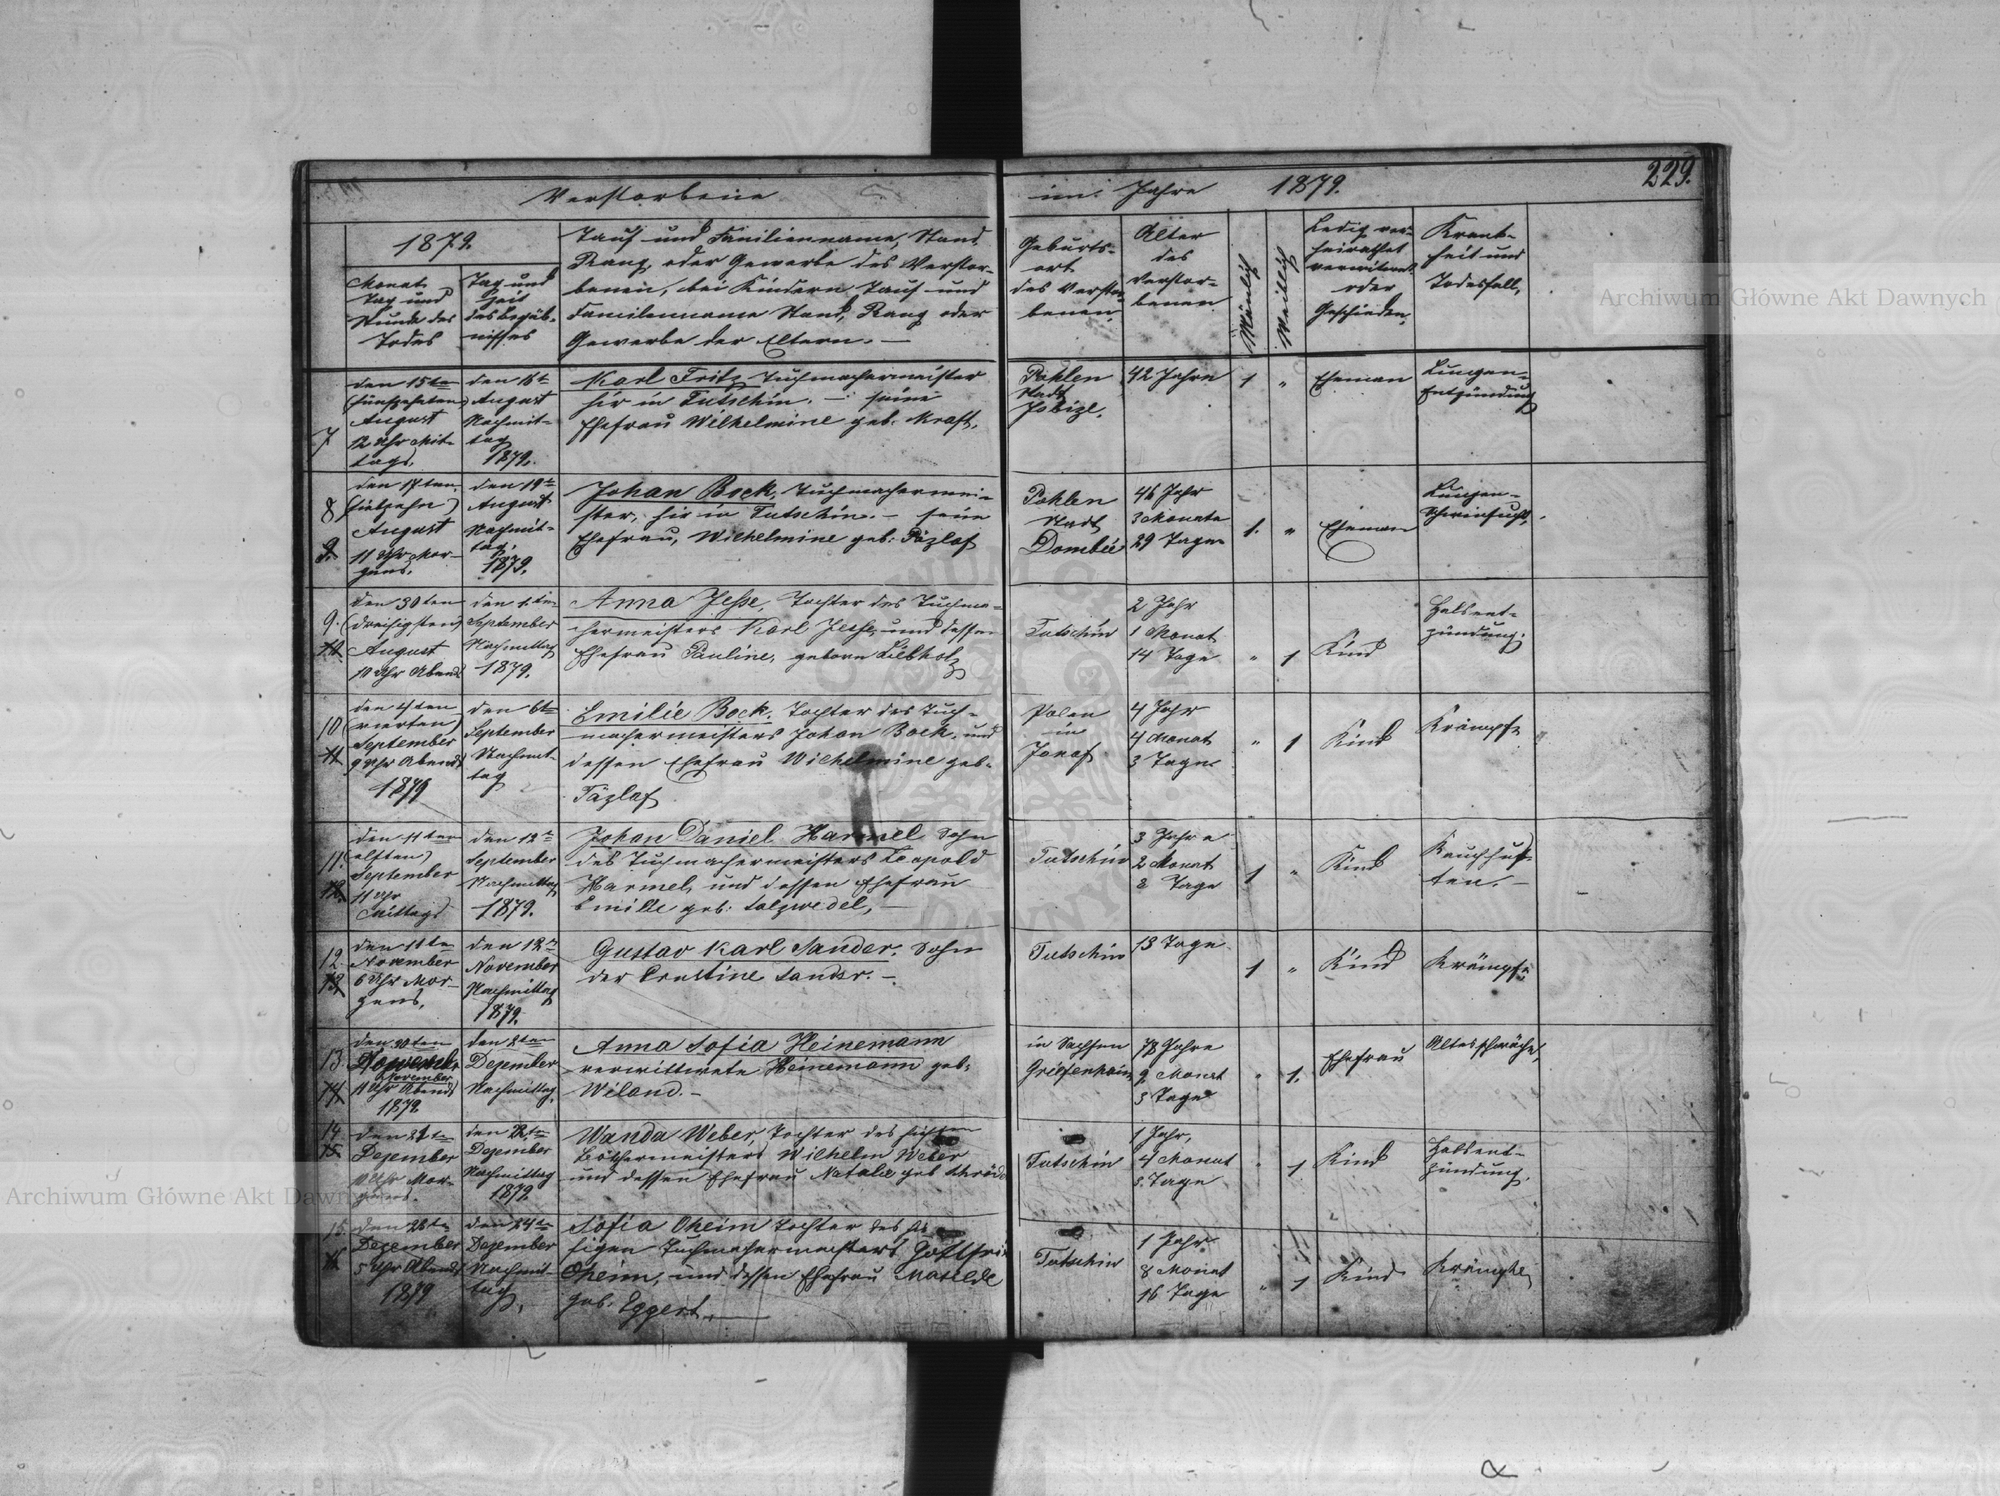 229.
Verstorbene im Jahre 1879.
1879.
Monat
Tag und
Stunde des
Todes
Tag und
Zeit
des Begäb-
nisses
Tauf und Familienname, Stand
Rang, oder Gewerbe des Verstor-
benen, bei Kindern Tauf und
Familienname Stand, Rang oder
Gewerbe der Eltern. —
Geburts-
ort
des Verstor-
benen
Alter
des
Verstor-
benen
Mänlich
Weiblich
Ledig ver-
heirathet
verwitwet
oder
Geschieden.
Krank-
heit und
Todesfall.
7
den 15ten
(fünfzehnten)
August
12 Uhr Mit-
tags.
August
Nachmit-
tag
1879.
Karl Fritz, Tuchmachermeister
hir in Tutschin. — seine
Ehefrau Wilhelmine geb. Kraft.
Pohlen
Stadt
42 Jahre
1
"
Eheman
Lungen-
Entzündung
8
den 17ten
(siebzehn)
August
11 Uhr Mor-
gens.
den 19te
August
Nachmit-
tag.
1879.
Johan Bock, Tuchmachermei-
ster, hir in Tutschin. — seine
Ehefrau, Wilhelmine geb: Päzlaf
Pohlen
Stadt
Dombie
46 Jahr
3 Monate
29 Tage
1.
"
Eheman
Lungen-
Schwinsucht.
9.
den 30ten
(dreisigsten)
August
10 Uhr Abend
den 1ten
September
Nachmittag
1879.
Anna Jesse, Tochter des Tuchma-
chermeisters Karl Jesse, und dessen
Ehefrau Pauline, geborn Liebholz
Tutschin
2 Jahr
1 Monat
14 Tage
"
1
Kind
Halsent-
zündung.
10
den 4ten
(vierten)
September
9 Uhr Abends
1879
den 6te
September
Nachmit-
tag
Emilie Bock. Tochter des Tuch-
machermeisters Johan Bock, und
dessen Ehefrau Wilhelmine geb.
Päzlaf
Polen
in
4 Jahr
4 Monat
3 Tage
"
1
Kind
Krämpfe
11.
den 11ten
(elften)
September
11 Uhr
Mittags
den 12te
September
Nachmittag
1879.
Johan Daniel Harmel Sohn
des Tuchmachermeisters Leopold
Harmel, und dessen Ehefrau
Emilie geb: Salzwedel, —
Tutschin
3 Jahre
2 Monat
Tage
1
"
Kind
Keuchhus-
ten. —
12.
November
6 Uhr Mor-
gens.
den 12te
November
Nachmittag
1879.
Gustav Karl Sander. Sohn
der Ernstine Sander. —
Tutschin
13 Tage
1
"
Kind
Krämpfe
13
den 30ten
November
11 Uhr Abends
1879
den 2ten
Dezember
Nachmittag.
Anna Sofia Heinemann
verwittwete Heinemann geb:
Wiland. —
in Sachsen
78 Jahre
9 Monat
3 Tage
"
1.
Ehefrau
Altesschwäche
14
Dezember
10 Uhr Mor-
gens.
den 22te
Dezember
Nachmittag
1879
Wanda Weber, Tochter des
Böttchermeisters Wilhelm Weber
und dessen Ehefrau Natalie geb
Tutschin
1 Jahr,
4 Monat
3 Tage
"
1
Kind
Halsent-
zündung.
15.
Dezember
5 Uhr Abends
1879
den 24te
Dezember
Nachmit-
tag.
Sofia Oheim Tochter des hi-
sigen Tuchmachermeisters Gottfri
Oheim, und dessen Ehefrau Matilde
geb. Eggert. —
Tutschin
1 Jahr
8 Monat
16 Tage
"
1
Kind
Krämpfe
Archiwum Główne Akt Dawnych
Archiwum Główne Akt Dawnych